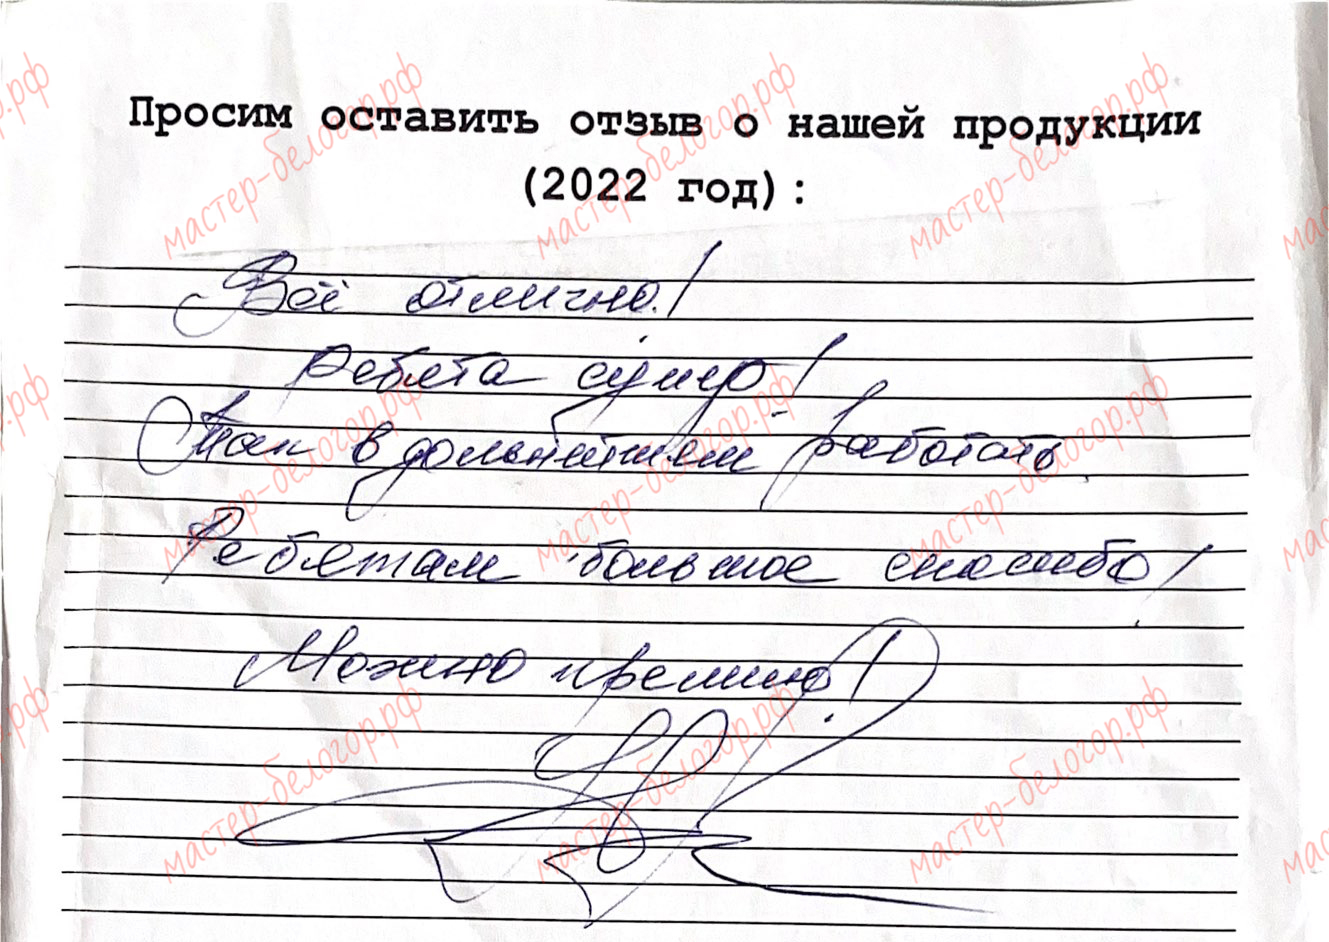 Просим оставить отзыв о нашей продукции
(2022 год):
Всё отлично!
Ребята супер!
Так в дольнейшем работать
Ребятам большое спасибо!
Можно премию!
мастер-белогор.рф